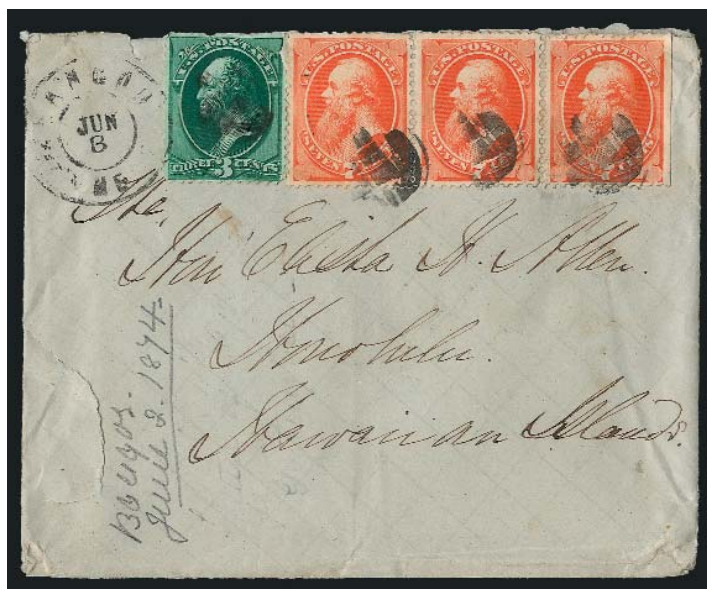 BANGOR
JUN
8
MAINE
U.S. POSTAGE
THREE 3 CENTS
U.S. POSTAGE
SEVEN 7 CENTS
U.S. POSTAGE
7 CENTS
U.S. POSTAGE
7 CENTS
The
Hon Elisha H. Allen.
Honolulu.
Hawaiian Islands.
Bangor.
June 2. 1874.